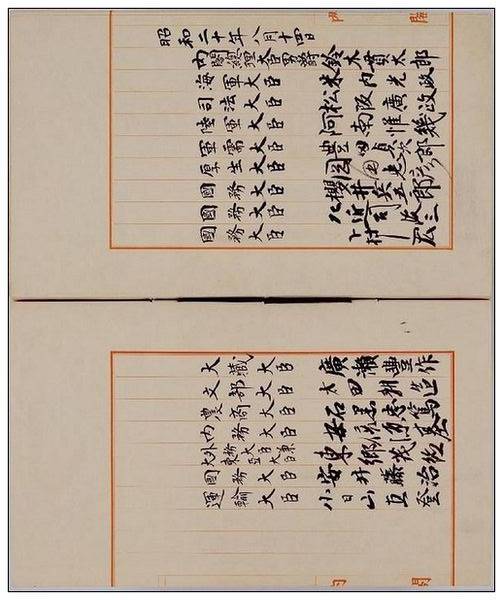 昭和二十年八月十四日
内閣總理大臣男爵 鈴木貫太郎
海軍大臣 米内光政
司法大臣 松阪廣政
陸軍大臣 阿南惟幾
軍需大臣 豊田貞次郎
厚生大臣 岡田忠彦
國務大臣 櫻井兵五郎
國務大臣 左近司政三
國務大臣 下村宏
大藏大臣 廣瀬豊作
文部大臣 太田耕造
農商大臣 石黒忠篤
内務大臣 安倍源基
外務大臣兼大東亞大臣 東郷茂徳
國務大臣 安井藤治
運輸大臣 小日山直登